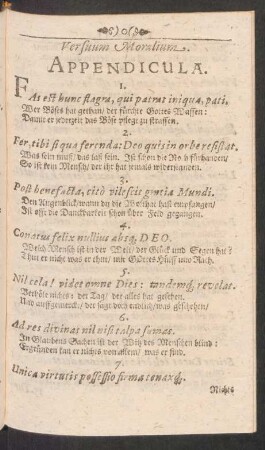 )o(
Versuum Moralium
APPENDICULA.
1.
FAs est hunc flagra, qui patrat iniqua, pati.
Wer Böses hat gethan/ der fürchte Gottes Waffen:
Damit er jederzeit das Böse pflegt zu straffen.
2.
Fer, tibi si qua ferenda: Deo quis in orbe resistat.
Was sein muß/ das laß sein. Ist schon die No h fürhanden/
So ist kein Mensch/ der ihr hat jemals widerstanden.
3.
Post benefacta, citò vilescit gratia Mundi.
Den Augenblick/wann du die Wolthat hast empfangen/
Ist offt die Danckbarkeit schon über Feld gegangen.
4.
Conatus felix nullius absq; DEO.
Welch Mensch ist in der Welt/ der Glück und Segen hat?
Thut er nicht was er thut/ mit Gottes Hülff und Rath.
5.
Nil cela! videt omne Dies: tandemq́; revelat.
Verhöle nichts: der Tag/ der alles hat gesehen.
Und auffgemerckt/ der sagt doch endlich/was geschehen/
6.
Ad res divinas nil nisi talpa sumas.
In Glaubens Sachen ist der Witz des Menschen blind:
Ergründen kan er nichts von allem/ was er find.
7.
Unica virtutis possessio firma tenaxq́;
Nichts